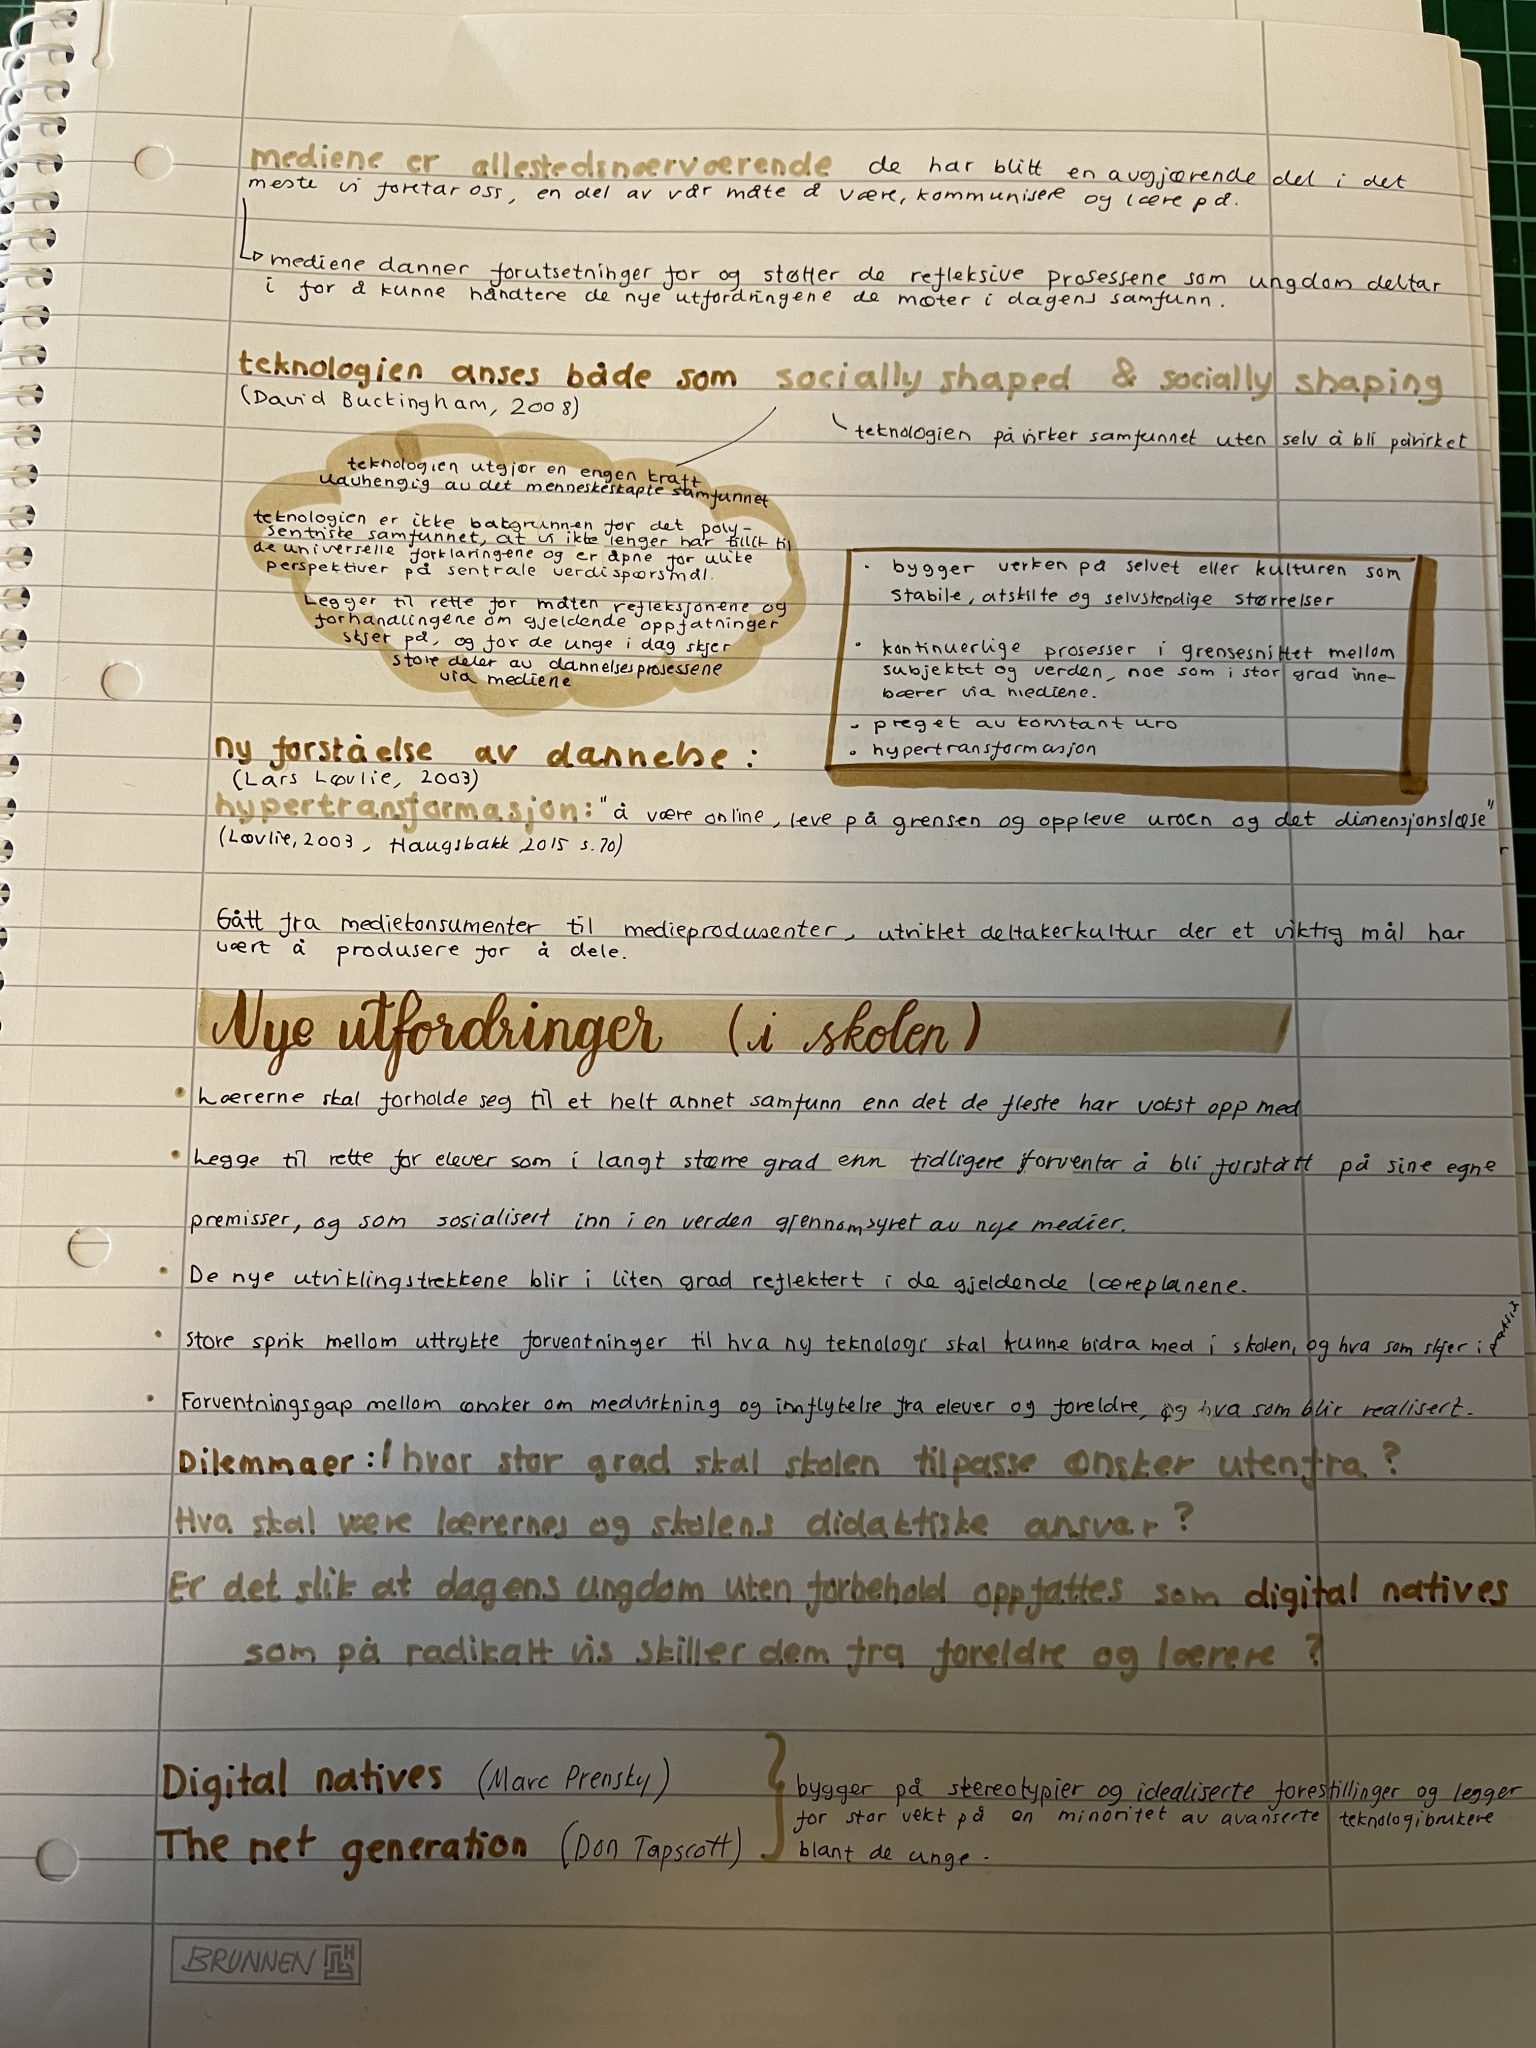 mediene er allestedsnærværende de har blitt en avgjørende del i det
meste vi foretar oss, en del av vår måte å være, kommunisere og lære på.
mediene danner forutsetninger for og støtter de refleksive prosessene som ungdom deltar
i for å kunne håndtere de nye utfordringene de møter i dagens samfunn.
teknologien anses både som socially shaped & socially shaping
(David Buckingham, 2008)
teknologien påvirker samfunnet uten selv å bli påvirket
teknologien utgjør en engen kraft
uavhengig av det menneskeskapte samfunnet
teknologien er ikke bakgrunnen for det poly-
sentriske samfunnet, at vi ikke lenger har tillit til
de universelle forklaringene og er åpne for ulike
perspektiver på sentrale verdispørsmål.
Legger til rette for måten refleksjonene og
forhandlingene om gjeldende oppfatninger
skjer på, og for de unge i dag skjer
store deler av dannelsesprosessene
via mediene
• bygger verken på selvet eller kulturen som
stabile, atskilte og selvstendige størrelser
• kontinuerlige prosesser i grensesnittet mellom
subjektet og verden, noe som i stor grad inne-
bærer via mediene.
• preget av konstant uro
• hypertransformasjon
ny forståelse av dannelse:
(Lars Løvlie, 2003)
hypertransformasjon: "å være online, leve på grensen og oppleve uroen og det dimensjonsløse"
(Løvlie, 2003, Haugsbakk, 2015 s.70)
Gått fra mediekonsumenter til medieprodusenter, utviklet deltakerkultur der et viktig mål har
vært å produsere for å dele.
Nye utfordringer (i skolen)
• Lærerne skal forholde seg til et helt annet samfunn enn det de fleste har vokst opp med
• Legge til rette for elever som i langt større grad enn tidligere forventer å bli forstått på sine egne
premisser, og som sosialisert inn i en verden gjennomsyret av nye medier.
• De nye utviklingstrekkene blir i liten grad reflektert i de gjeldende læreplanene.
• Store sprik mellom uttrykte forventninger til hva ny teknologi skal kunne bidra med i skolen, og hva som skjer i praksis
• Forventningsgap mellom ønsker om medvirkning og innflytelse fra elever og foreldre, og hva som blir realisert.
Dilemmaer: I hvor stor grad skal skolen tilpasse ønsker utenfra?
Hva skal være lærernes og skolens didaktiske ansvar?
Er det slik at dagens ungdom uten forbehold oppfattes som digital natives
som på radikalt vis skiller dem fra foreldre og lærere?
Digital natives (Marc Prensky)
The net generation (Don Tapscott)
bygger på stereotypier og idealiserte forestillinger og legger
for stor vekt på en minoritet av avanserte teknologibrukere
blant de unge.
BRUNNEN